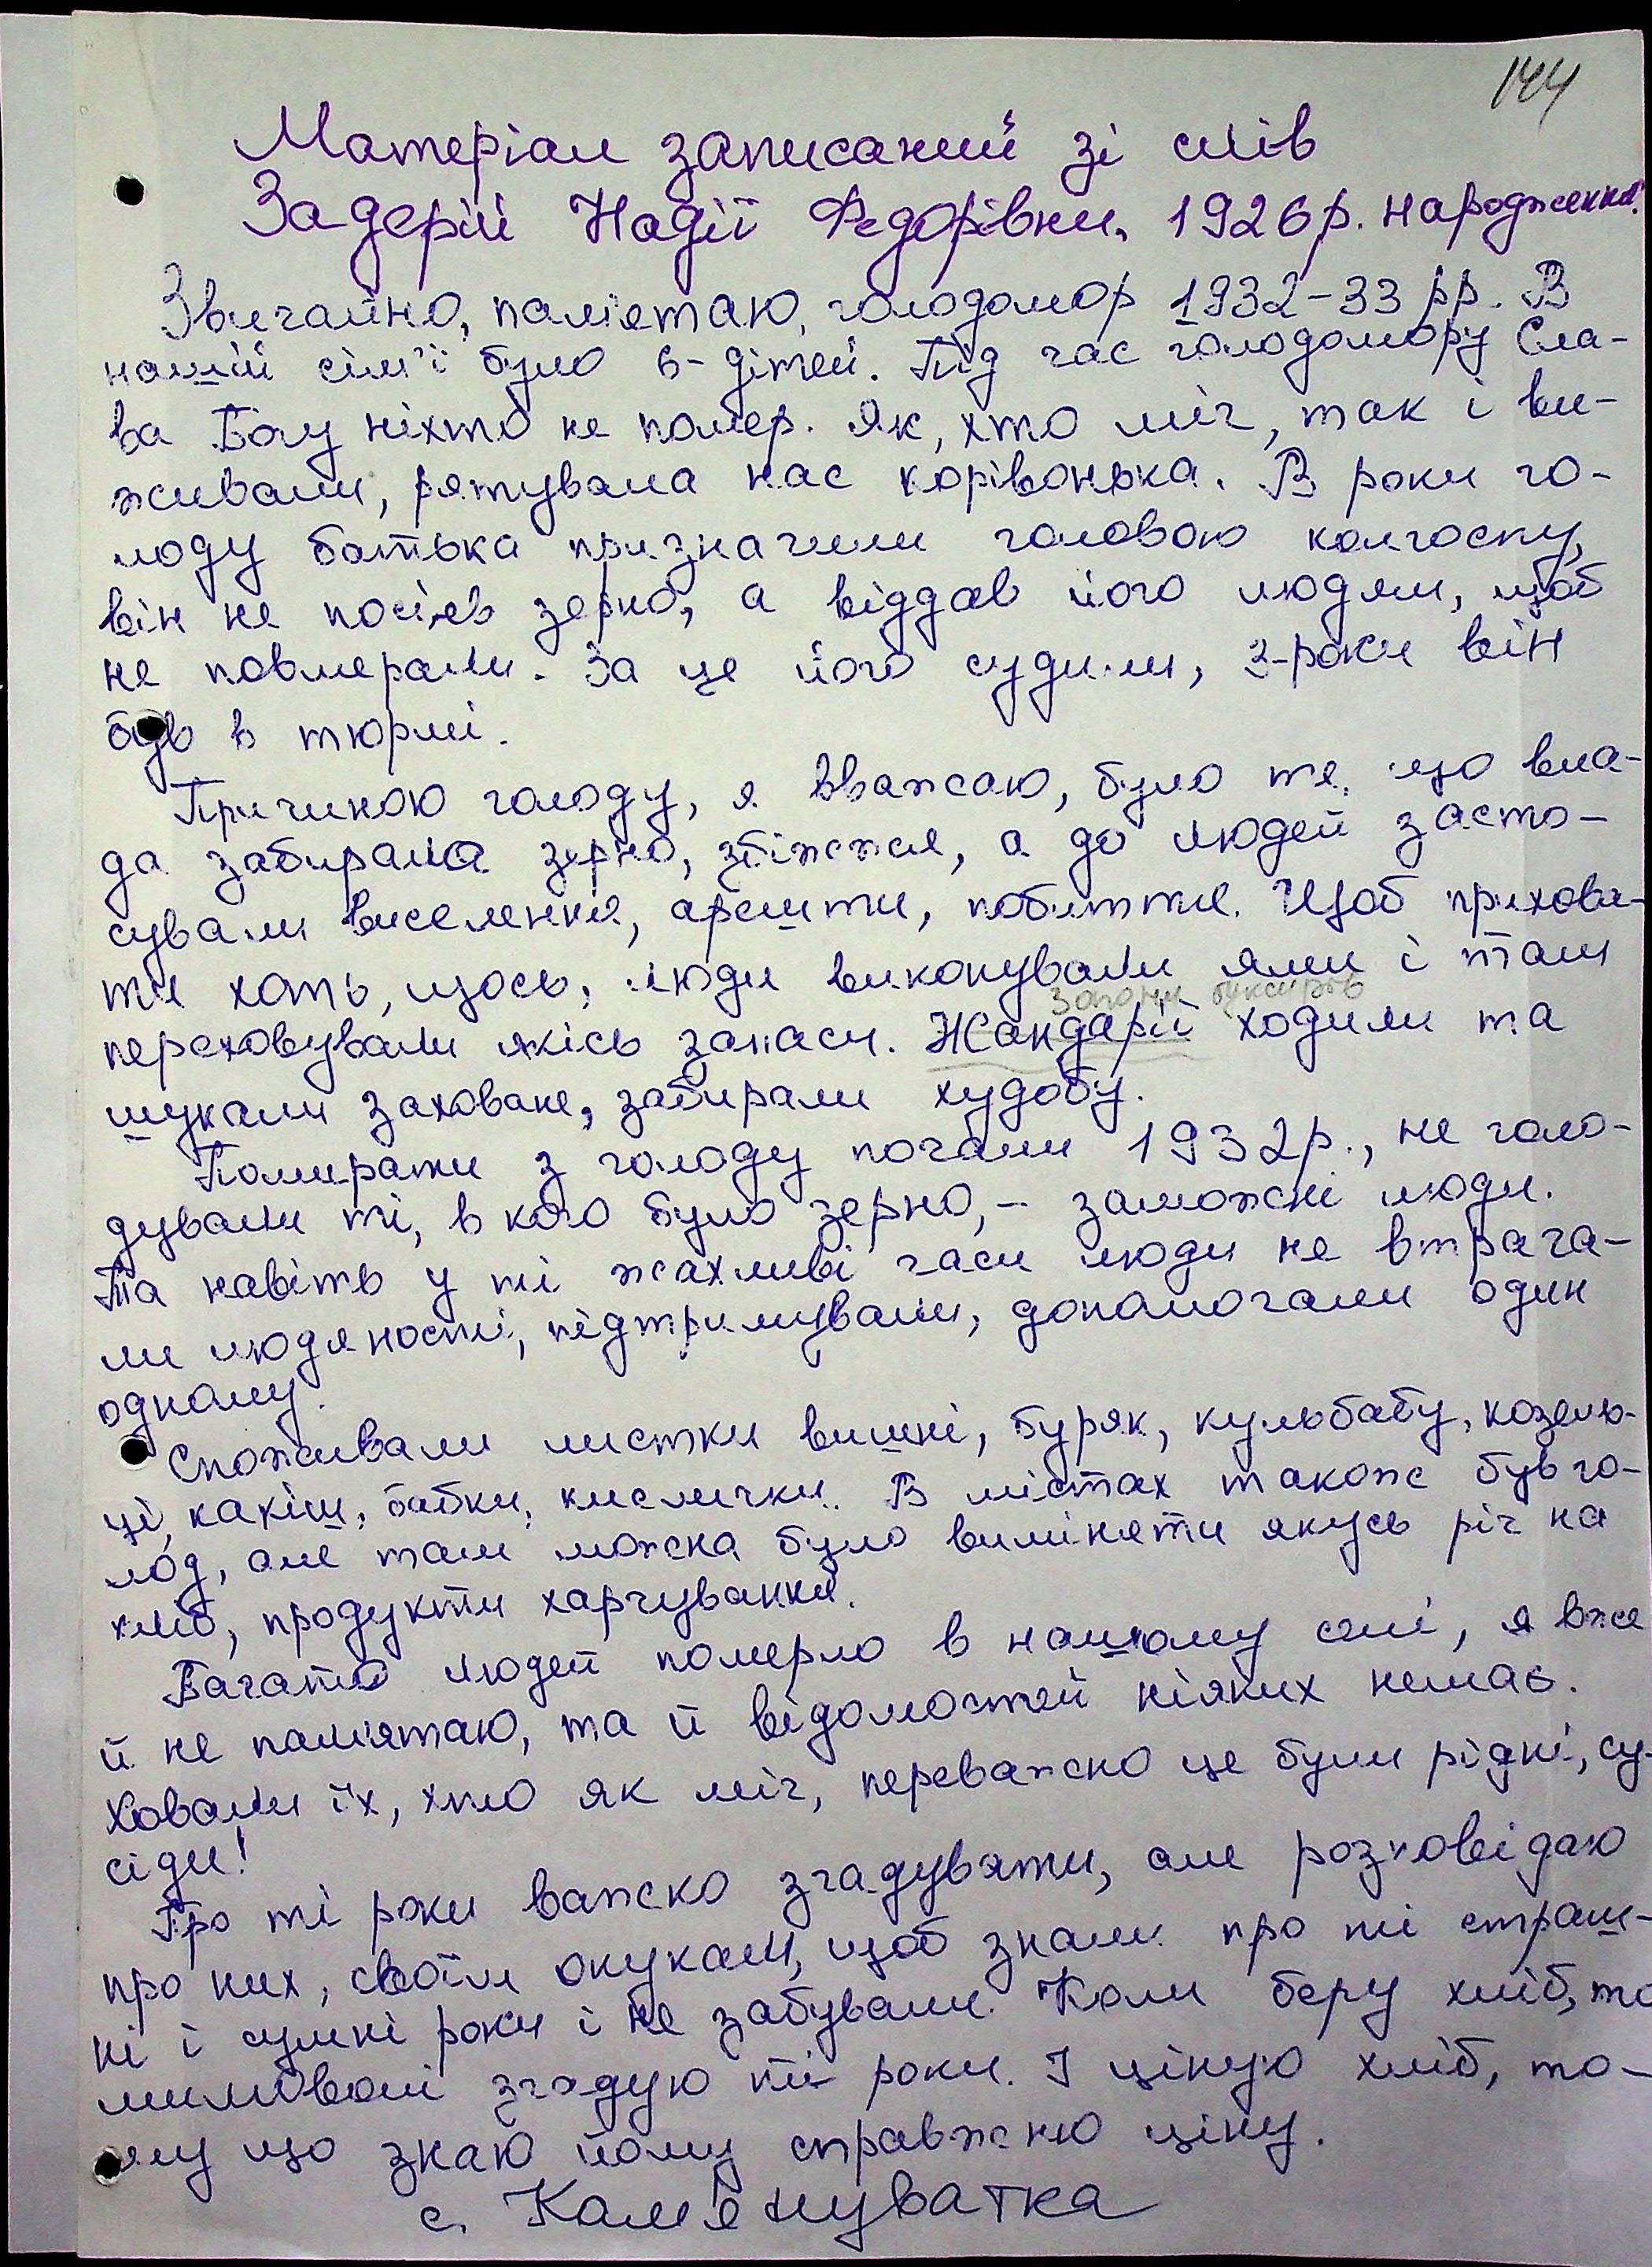 144
Матеріал записаний зі слів
Задерій Надії Федорівни, 1926 р. народження.
Звичайно, пам'ятаю, голодомор 1932-33 рр. В
нашій сім'ї було 6-дітей. Під час голодомору Сла-
ва Богу ніхто не помер. Як, хто міг, так і ви-
живали, рятувала нас корівонька. В роки го-
лоду батька призначили головою колгоспу,
він не посіяв зерно, а віддав його людям, щоб
не повмерали. За це його судили, 3-роки він
був в тюрмі.
Причиною голоду, я вважаю, було те, що вла-
да забирала зерно, збіжжя, а до людей засто-
сували виселення, арешти, побиття. Щоб прихова-
ти хоть, щось, люди викопували ями і там
буксирів
переховували якісь запаси. Жандарії ходили та
шукали заховане, забирали худобу.
Помирати з голоду почали 1932р., не голо-
дували ті, в кого було зерно, - заможні люди.
Та навіть у ті жахливі часи люди не втрача-
ли людяності, підтримували, допомогали один
одному.
Споживали листки вишні, буряк, кульбабу, козелю-
ці, качіш, бабки, кислички. В містах також був го-
лод, але там можна було виміняти якусь річ на
хліб, продукти харчування.
Багато людей померло в нашому селі, я вже
й не пам'ятаю, та й відомостей ніяких немає.
Ховали їх, хто як міг, переважно це були рідні, су-
сіди!
Про ті роки важко згадувати, але розповідаю
про них, своїм онукам, щоб знали про ті страш-
ні і сумні роки і не забували. Коли беру хліб, то
мимоволі згадую ті роки. І ціную хліб, то-
му що знаю йому справжню ціну.
с. Кам'януватка